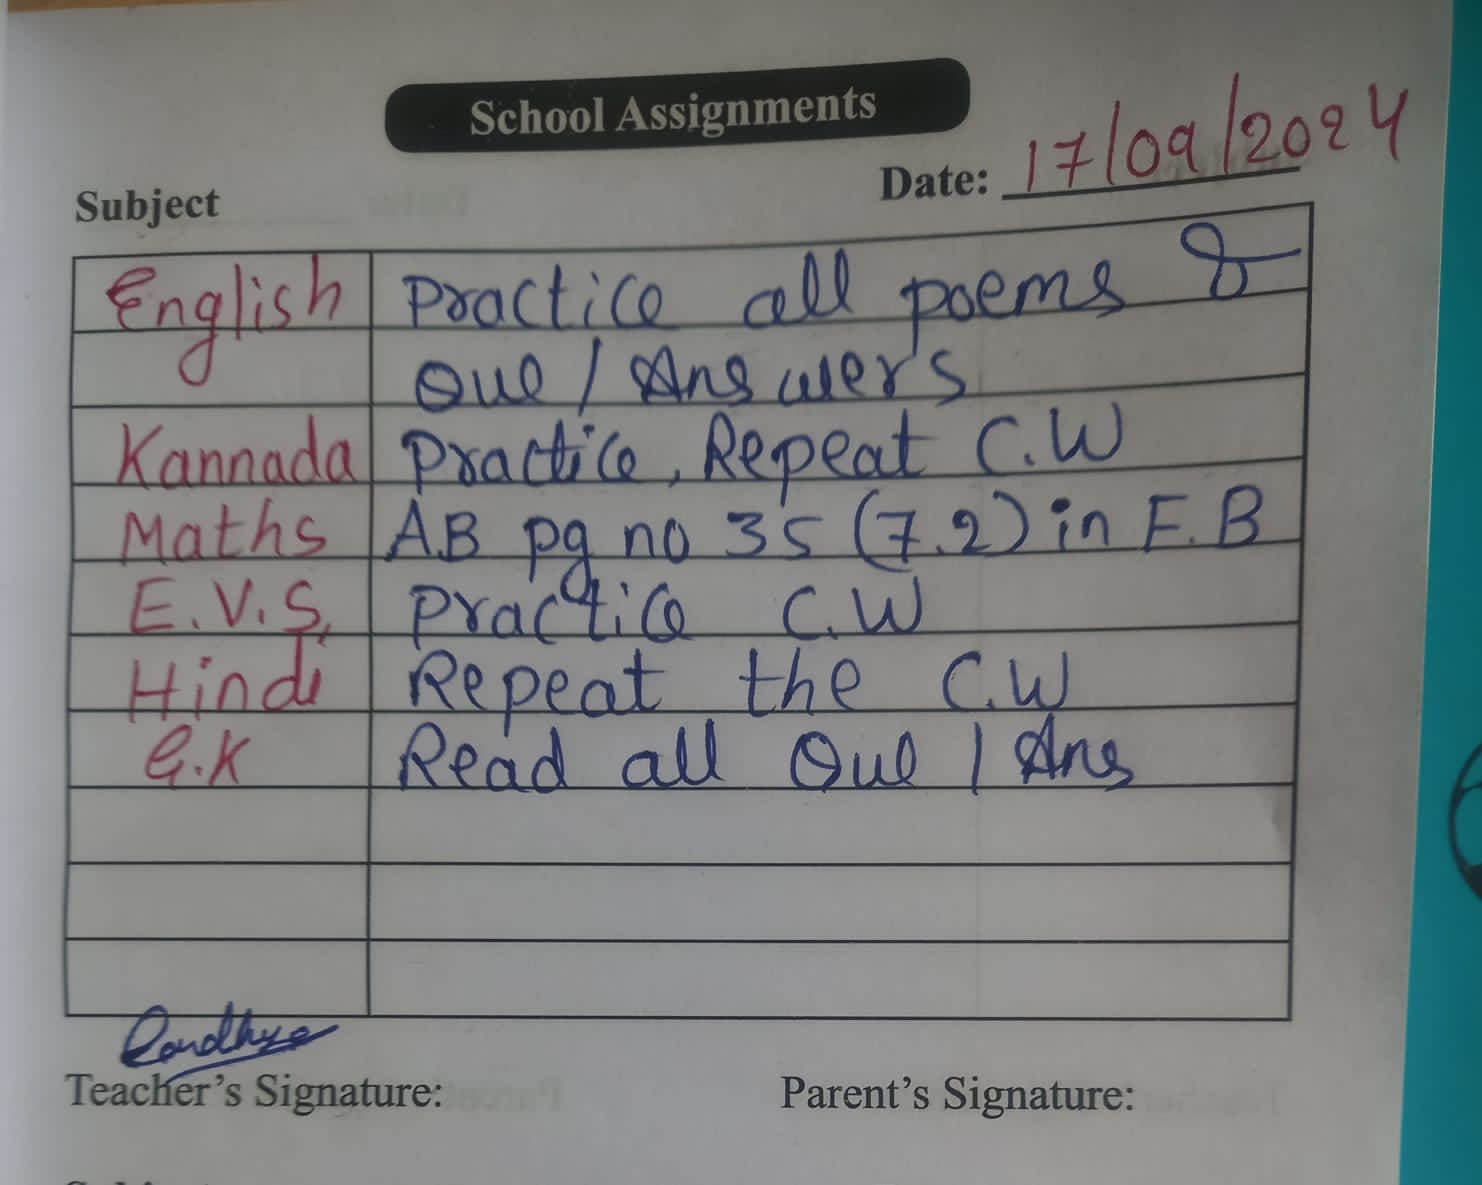 School Assignments
Date: 17/09/2024
Subject
English Practice all poems &
Que / Answers
Kannada Practice, Repeat C.W
Maths AB pg no 35 (7.2) in F.B
E.V.S, Practice C.W
Hindi Repeat the C.W
G.K Read all Que / Ans
Teacher's Signature: Parent's Signature: